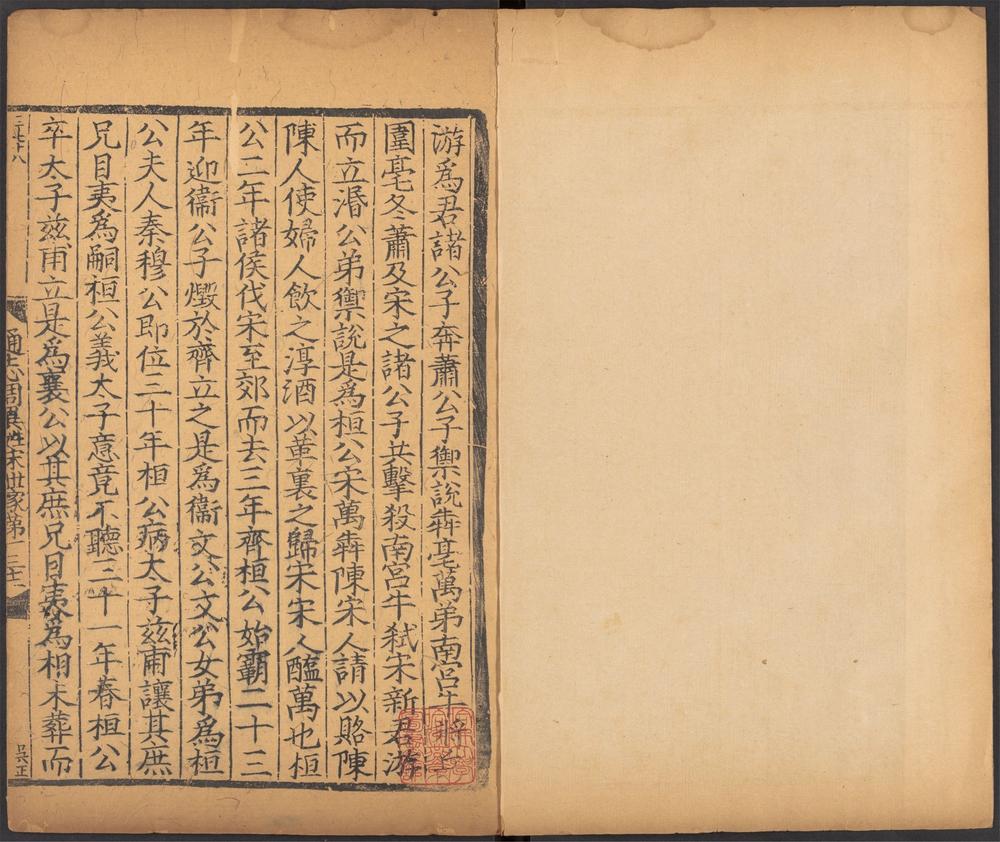 游爲君諸公子奔蕭公子禦說犇亳萬弟南宮牛將
圍亳冬蕭及宋之諸公子共擊殺南宮牛弒宋新君游
而立湣公弟禦說是爲桓公宋萬犇陳宋人請以賂陳
陳人使婦人飲之淳酒以革裹之歸宋宋人醢萬也桓
公二年諸侯伐宋至郊而去三年齊桓公始霸二十三
年迎衞公子燬於齊立之是爲衞文公文公女弟爲桓
公夫人秦穆公即位三十年桓公病太子茲甫讓其庶
兄目夷爲嗣桓公義太子意竟不聽三十一年春桓公
卒太子茲甫立是爲襄公以其庶兄目夷爲相未葬而
通志周異姓宋世家第
吳正